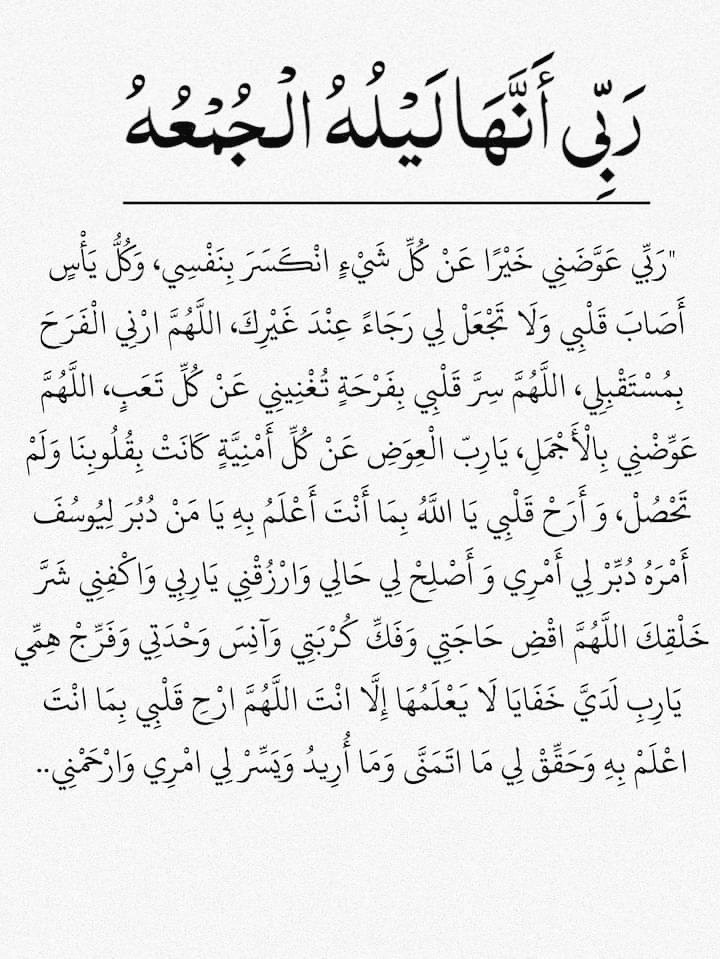 رَبِّي أَنَّهَا لَيْلُهُ الْجُمْعُهُ
"رَبِّي عَوَّضَنِي خَيْرًا عَنْ كُلِّ شَيْءٍ انْكَسَرَ بِنَفْسِي، وَكُلُّ يَأْسٍ
أَصَابَ قَلْبِي وَلَا تَجْعَلْ لِي رَجَاءً عِنْدَ غَيْرِكَ، اللَّهُمَّ ارْنِي الْفَرَحَ
بِمُسْتَقْبِلِي، اللَّهُمَّ سِرَّ قَلْبِي بِفَرْحَةٍ تُغْنِينِي عَنْ كُلِّ تَعَبٍ، اللَّهُمَّ
عَوِّضْنِي بِالْأَجْمَلِ، يَارِبّ الْعِوَضِ عَنْ كُلِّ أَمْنِيَّةٍ كَانَتْ بِقُلُوبِنَا وَلَمْ
تَحْصُلْ، وَ أَرَحْ قَلْبِي يَا اللَّهُ بِمَا أَنْتَ أَعْلَمُ بِهِ يَا مَنْ دُبُرَ لِيُوسُفَ
أَمْرَهُ دُبِّرْ لِي أَمْرِي وَ أَصْلِحْ لِي حَالِي وَارْزُقْنِي يَارِبِي وَاكْفِنِي شَرَّ
خَلْقِكَ اللَّهُمَّ اقْضِ حَاجَتِي وَفَكِّ كُرْبَتِي وَآنِسَ وَحْدَتِي وَفَرِّجْ هِمِّي
يَارِبِ لَدَيَّ خَفَايَا لَا يَعْلَمُهَا إِلَّا انْتَ اللَّهُمَّ ارْحِ قَلْبِي بِمَا انْتَ
اعْلَمْ بِهِ وَحَقِّقْ لِي مَا اتَمَنَّى وَمَا أُرِيدُ وَيَسِّرْ لِي امْرِي وَارْحَمْنِي..